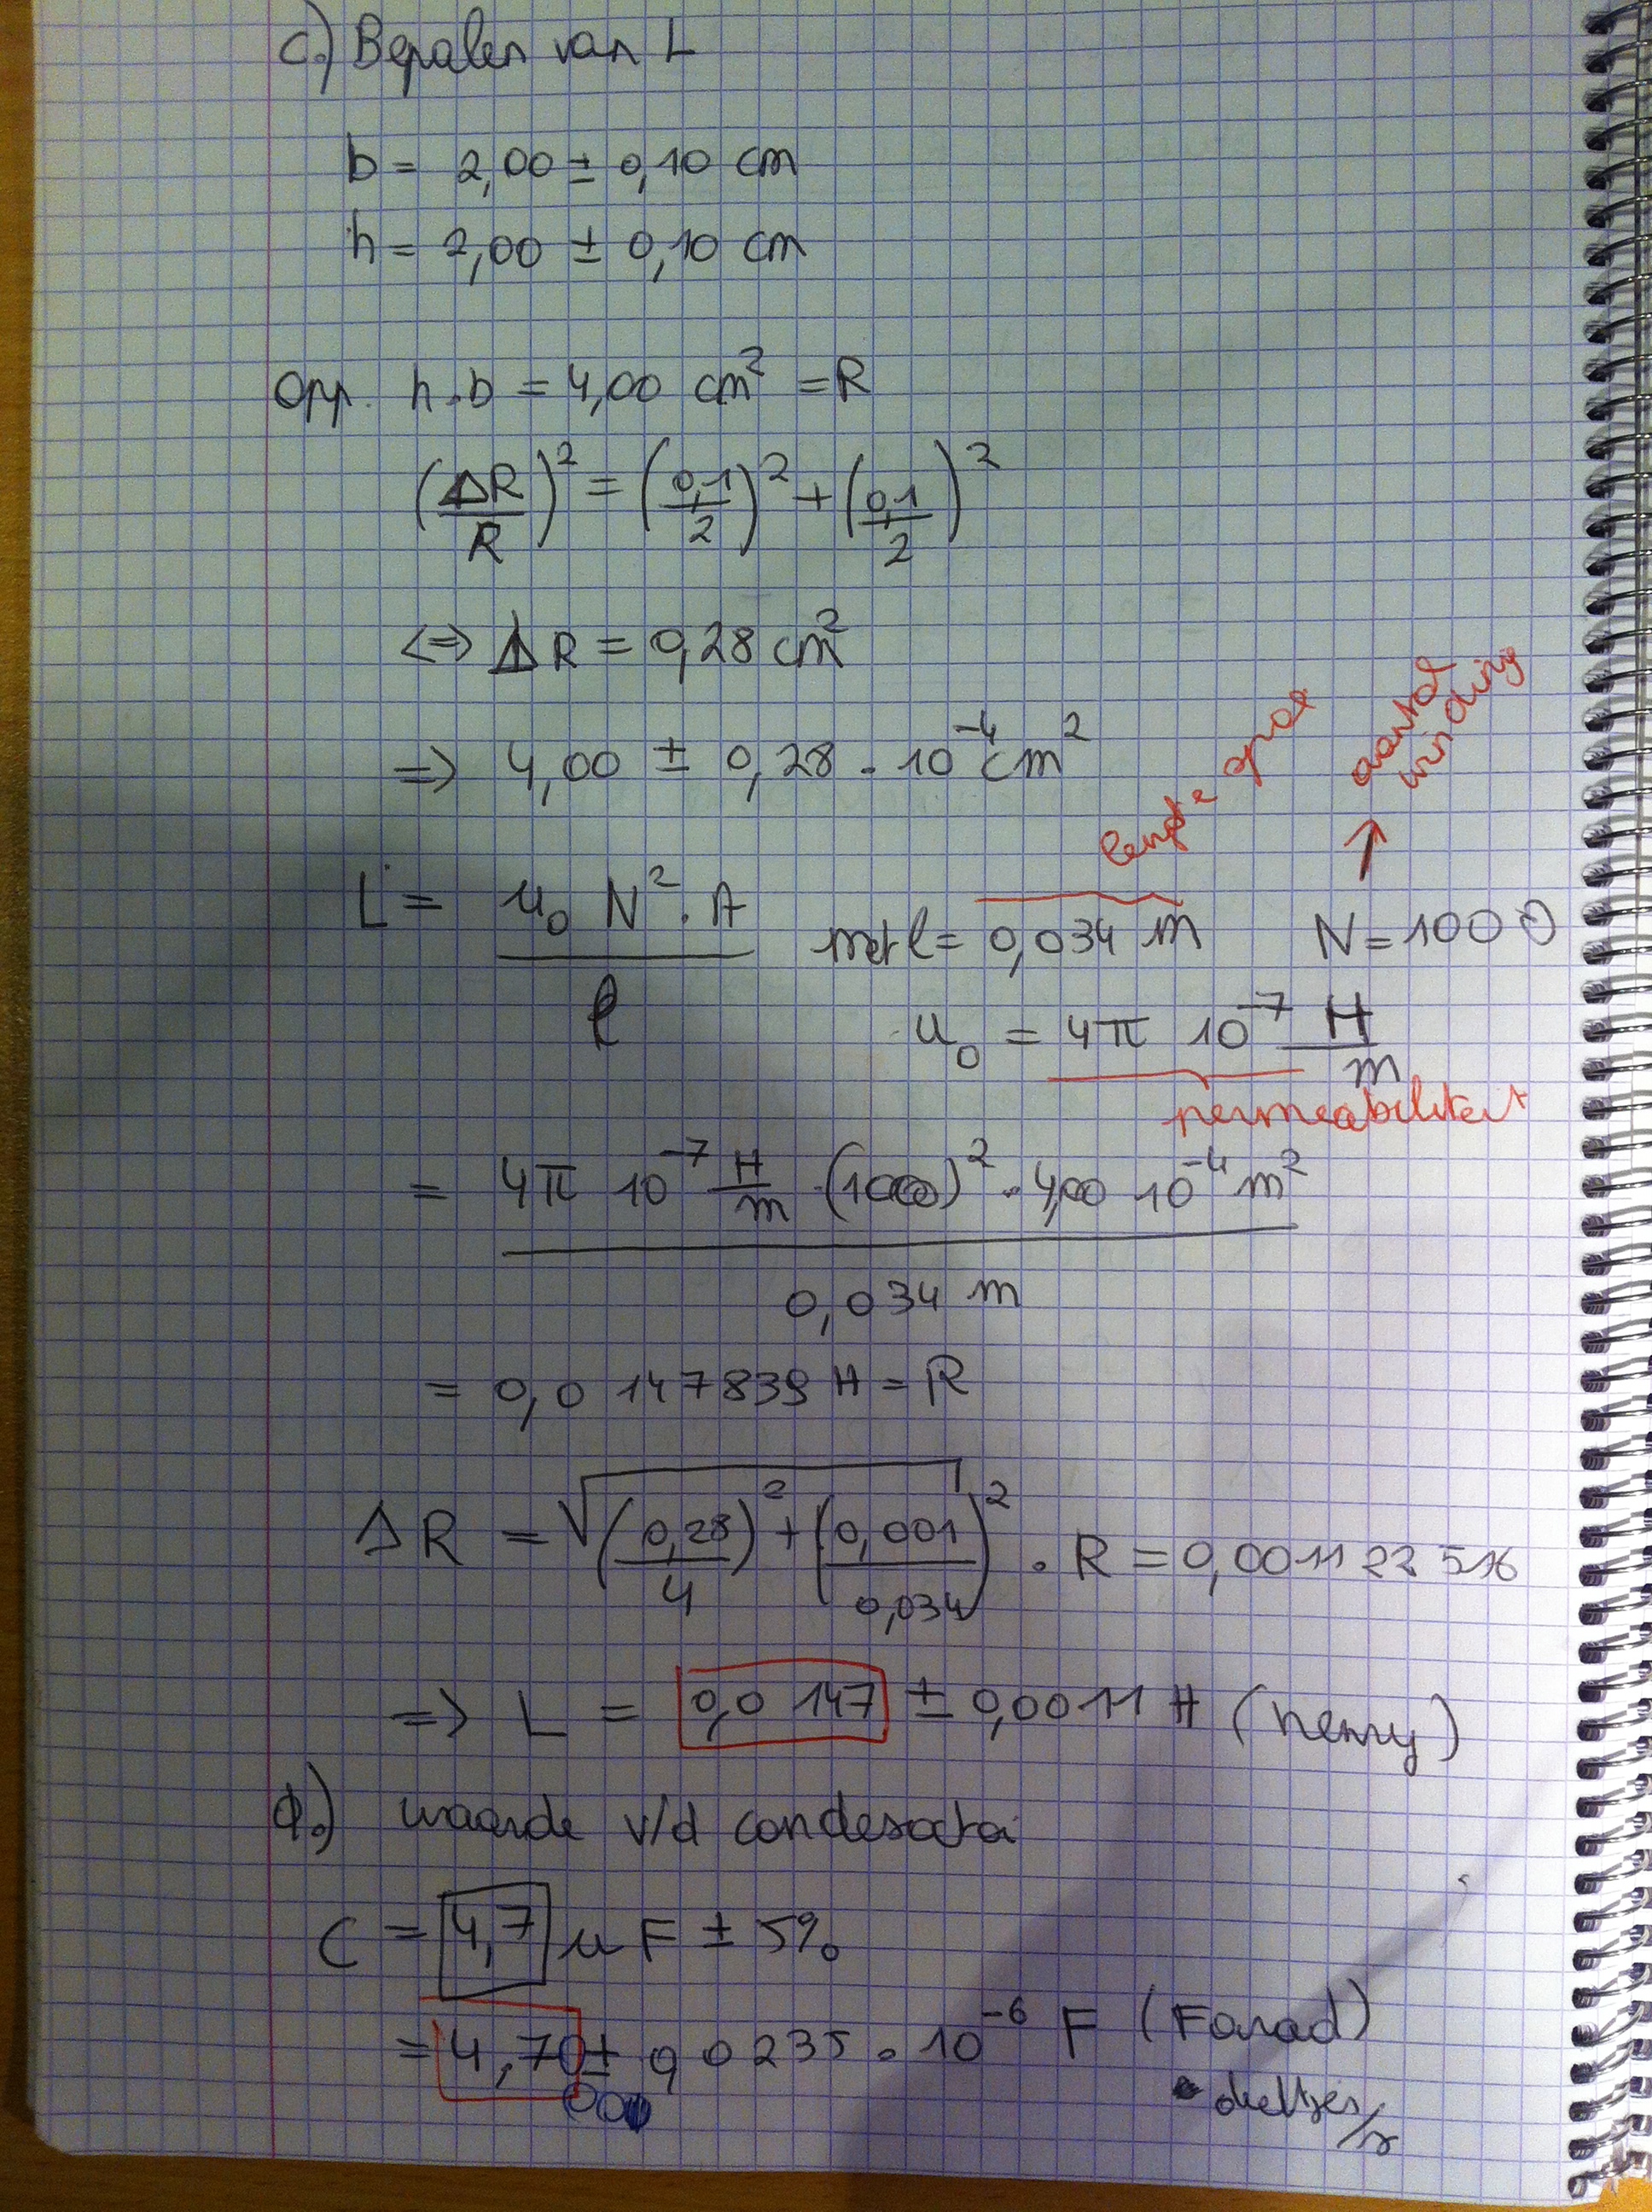 c.) Bepalen van L
b = 2,00 ± 0,10 cm
h = 2,00 ± 0,10 cm
Opp. h.b = 4,00 cm² = R
(ΔR/R)² = (0,1/2)² + (0,1/2)²
<=> ΔR = 0,28 cm²
=> 4,00 ± 0,28 . 10⁻⁴ cm²
lengte spoel
aantal winding
L = μ₀ N² . A / l met l = 0,034 m N = 1000
μ₀ = 4π 10⁻⁷ H/m
permeabiliteit
= 4π 10⁻⁷ H/m . (1000)² . 4,00 10⁻⁴ m² / 0,034 m
= 0,0147839 H = R
ΔR = √(0,28/4)² + (0,001/0,034)² . R = 0,001122516
=> L = 0,0147 ± 0,0011 H (henry)
d.) waarde v/d condesator
C = 4,7 μF ± 5%
= 4,70 ± 0,0235 . 10⁻⁶ F (Farad)